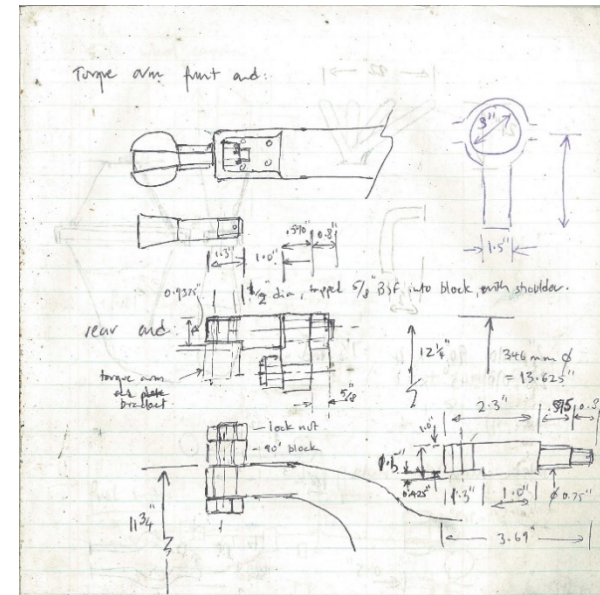 Torque arm front end:
3"
1.5"
.590" 0.8"
1.3" 1.0"
0.9375"
1/2" dia, tapped 5/8" BSF into block, with shoulder.
rear end:
torque arm
bracket
5/8
12 1/4"
346 mm ø
= 13.625"
lock nut
90° block
11 3/4"
2.3" .595 0.8
1.0"
0.425"
1.3" 1.0" ø 0.75"
3.69"